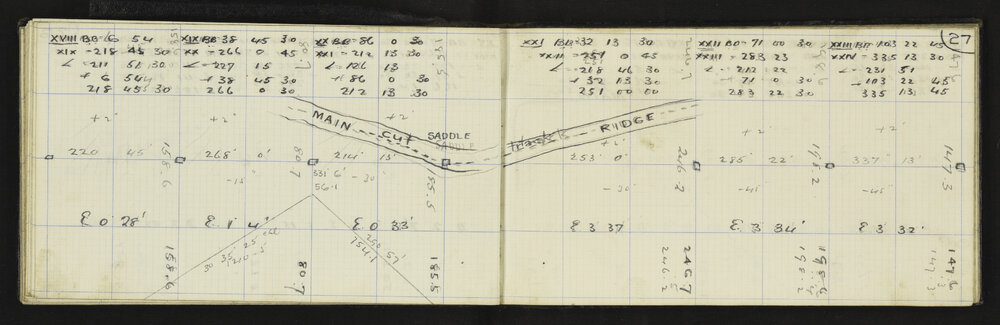 XVIII BB - 6 54
XIX - 218 45 30
∠ - 211 51 30
+ 6 54
218 45 30
XIX BB 38 45 30
XX - 266 0 45
∠ - 227 15
+ 38 45 30
266 0 30
XX BB - 86 0 30
XXI - 212 13 30
∠ - 126 13
+ 86 0 30
212 13 30
XXI BB - 32 13 30
XXII - 251 0 45
∠ - 218 46 30
+ 32 13 30
251 00 00
XXII BB - 71 00 30
XXIII - 283 23
∠ - 212 22
71 0 30
283 22 30
XXIII BB 103 22 45
XXIV - 335 13 30
∠ - 231 51
+ 103 22 45
335 13 45
(27
185.5
+ 2'
+ 2'
+ 2'
MAIN cut SADDLE
SADDLE
RIDGE
220 45'
158.6
268° 0'
80.7
214° 15'
55.5
253° 0'
246.2
285° 22'
198.2
337° 13'
147.3
- 15'
331° 6' - 30
56.1
- 30
- 45
- 45
E 0 28'
E 1 4'
E 0 33'
E 3 37
E 3 34'
E 3 32'
30 35' 25
210.5
250 57'
754.1
158.6
80.7
185.5
246.7
246.2
198.6
198.2
147.6
147.3